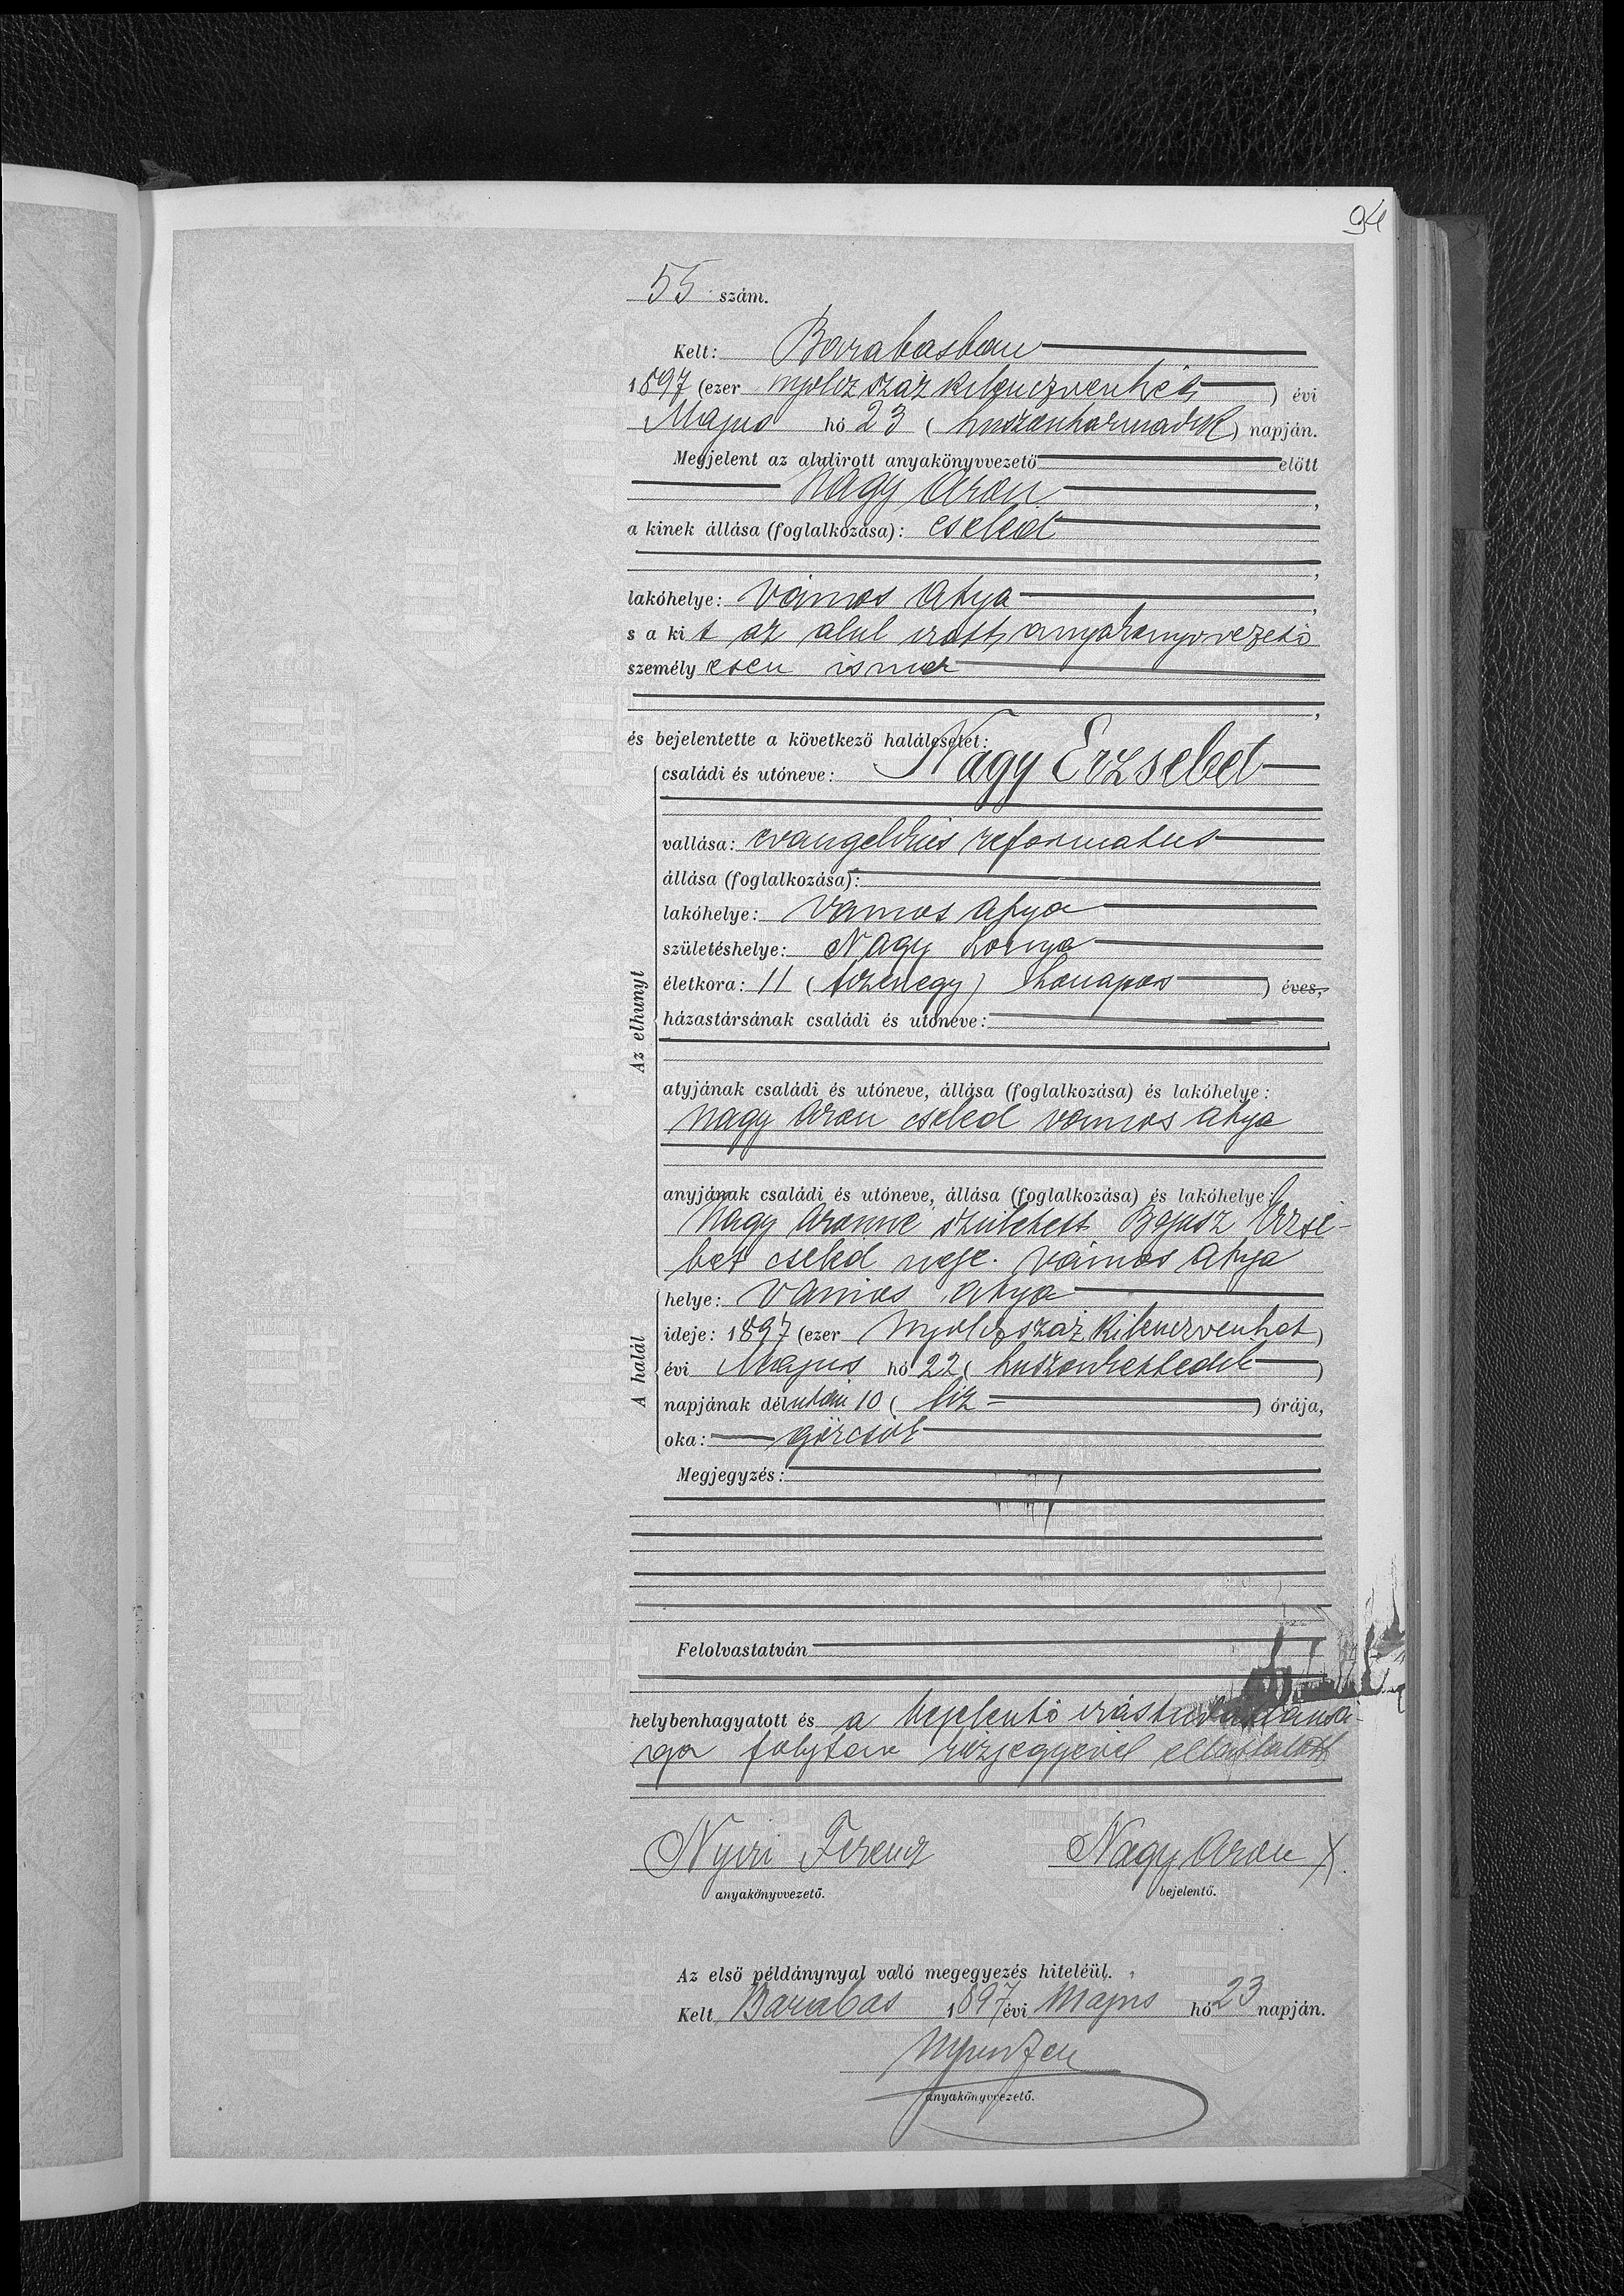 94
55 szám.
Kelt: Barabasban
1897 (ezer nyolcz száz kilenczvenhét) évi
Majus hó 23 (huszonharmadik) napján.
Megjelent az alulirott anyakönyvvezető előtt
Nagy Aron,
a kinek állása (foglalkozása): cseled
,
lakóhelye: Vámos Atya,
s a kit az alul irott anyakönyvvezető
személyesen ismer
,
és bejelentette a következő halálesetet:
családi és utóneve: Nagy Erzsebet
Az elhunyt
vallása: evangelikus reformatus
állása (foglalkozása):
lakóhelye: Vamos Atya
születéshelye: Nagy Lonya
életkora: 11 (tizenegy) honapos ) éves,
házastársának családi és utóneve:
atyjának családi és utóneve, állása (foglalkozása) és lakóhelye:
Nagy Aron cseled Vamos Atya
anyjának családi és utóneve, állása (foglalkozása) és lakóhelye:
Nagy Aronne született Bojusz Erzse-
bet cseled neje. Vámos Atya
A halál
helye: Vamos Atya
ideje: 1897 (ezer Nyolcz száz kilenczvenhet)
évi Majus hó 22 (huszonkettedik)
napjának délutáni 10 (tiz - ) órája,
oka: görcsök
Megjegyzés:
Felolvastatván
helybenhagyatott és a bejelentő irástudatlansá-
ga folytan kezjegyevel ellattatott
Nyiri Ferencz Nagy Aron X.
anyakönyvvezető. bejelentő.
Az első példánynyal való megegyezés hiteléül.
Kelt Barabas 1897 évi Majus hó 23 napján.
Nyiri Fer
anyakönyvvezető.